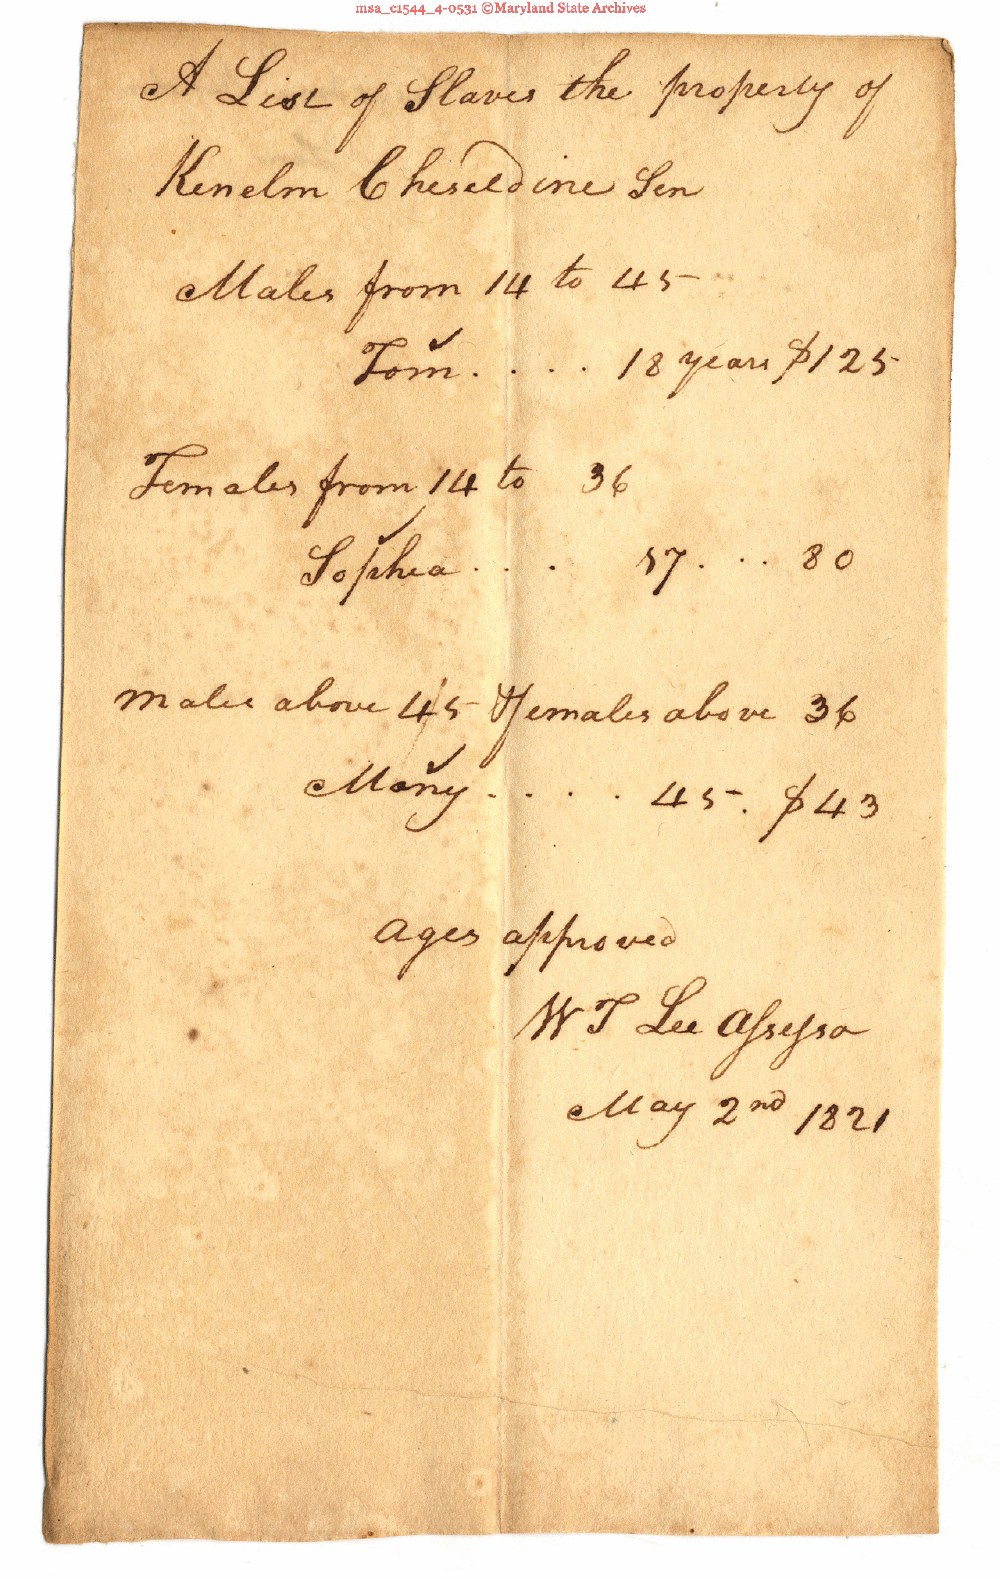 msa_c1544_4-0531 ©Maryland State Archives
A List of Slaves the property of
Kenelm Cheseldine Sen
Males from 14 to 45
Tom . . . . 18 years $125
Females from 14 to 36
Sophia . . . 17 . . . 80
Males above 45 & females above 36
Mony . . . . 45 . $43
Ages approved
W T Lee Assessor
May 2nd 1821